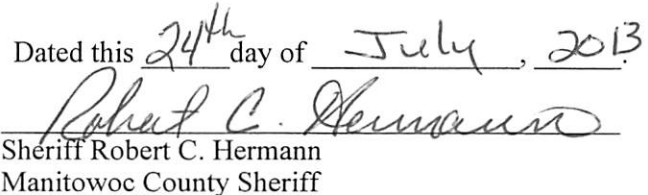 Dated this 24th day of July, 2013.
Robert C. Hermann
Sheriff Robert C. Hermann
Manitowoc County Sheriff